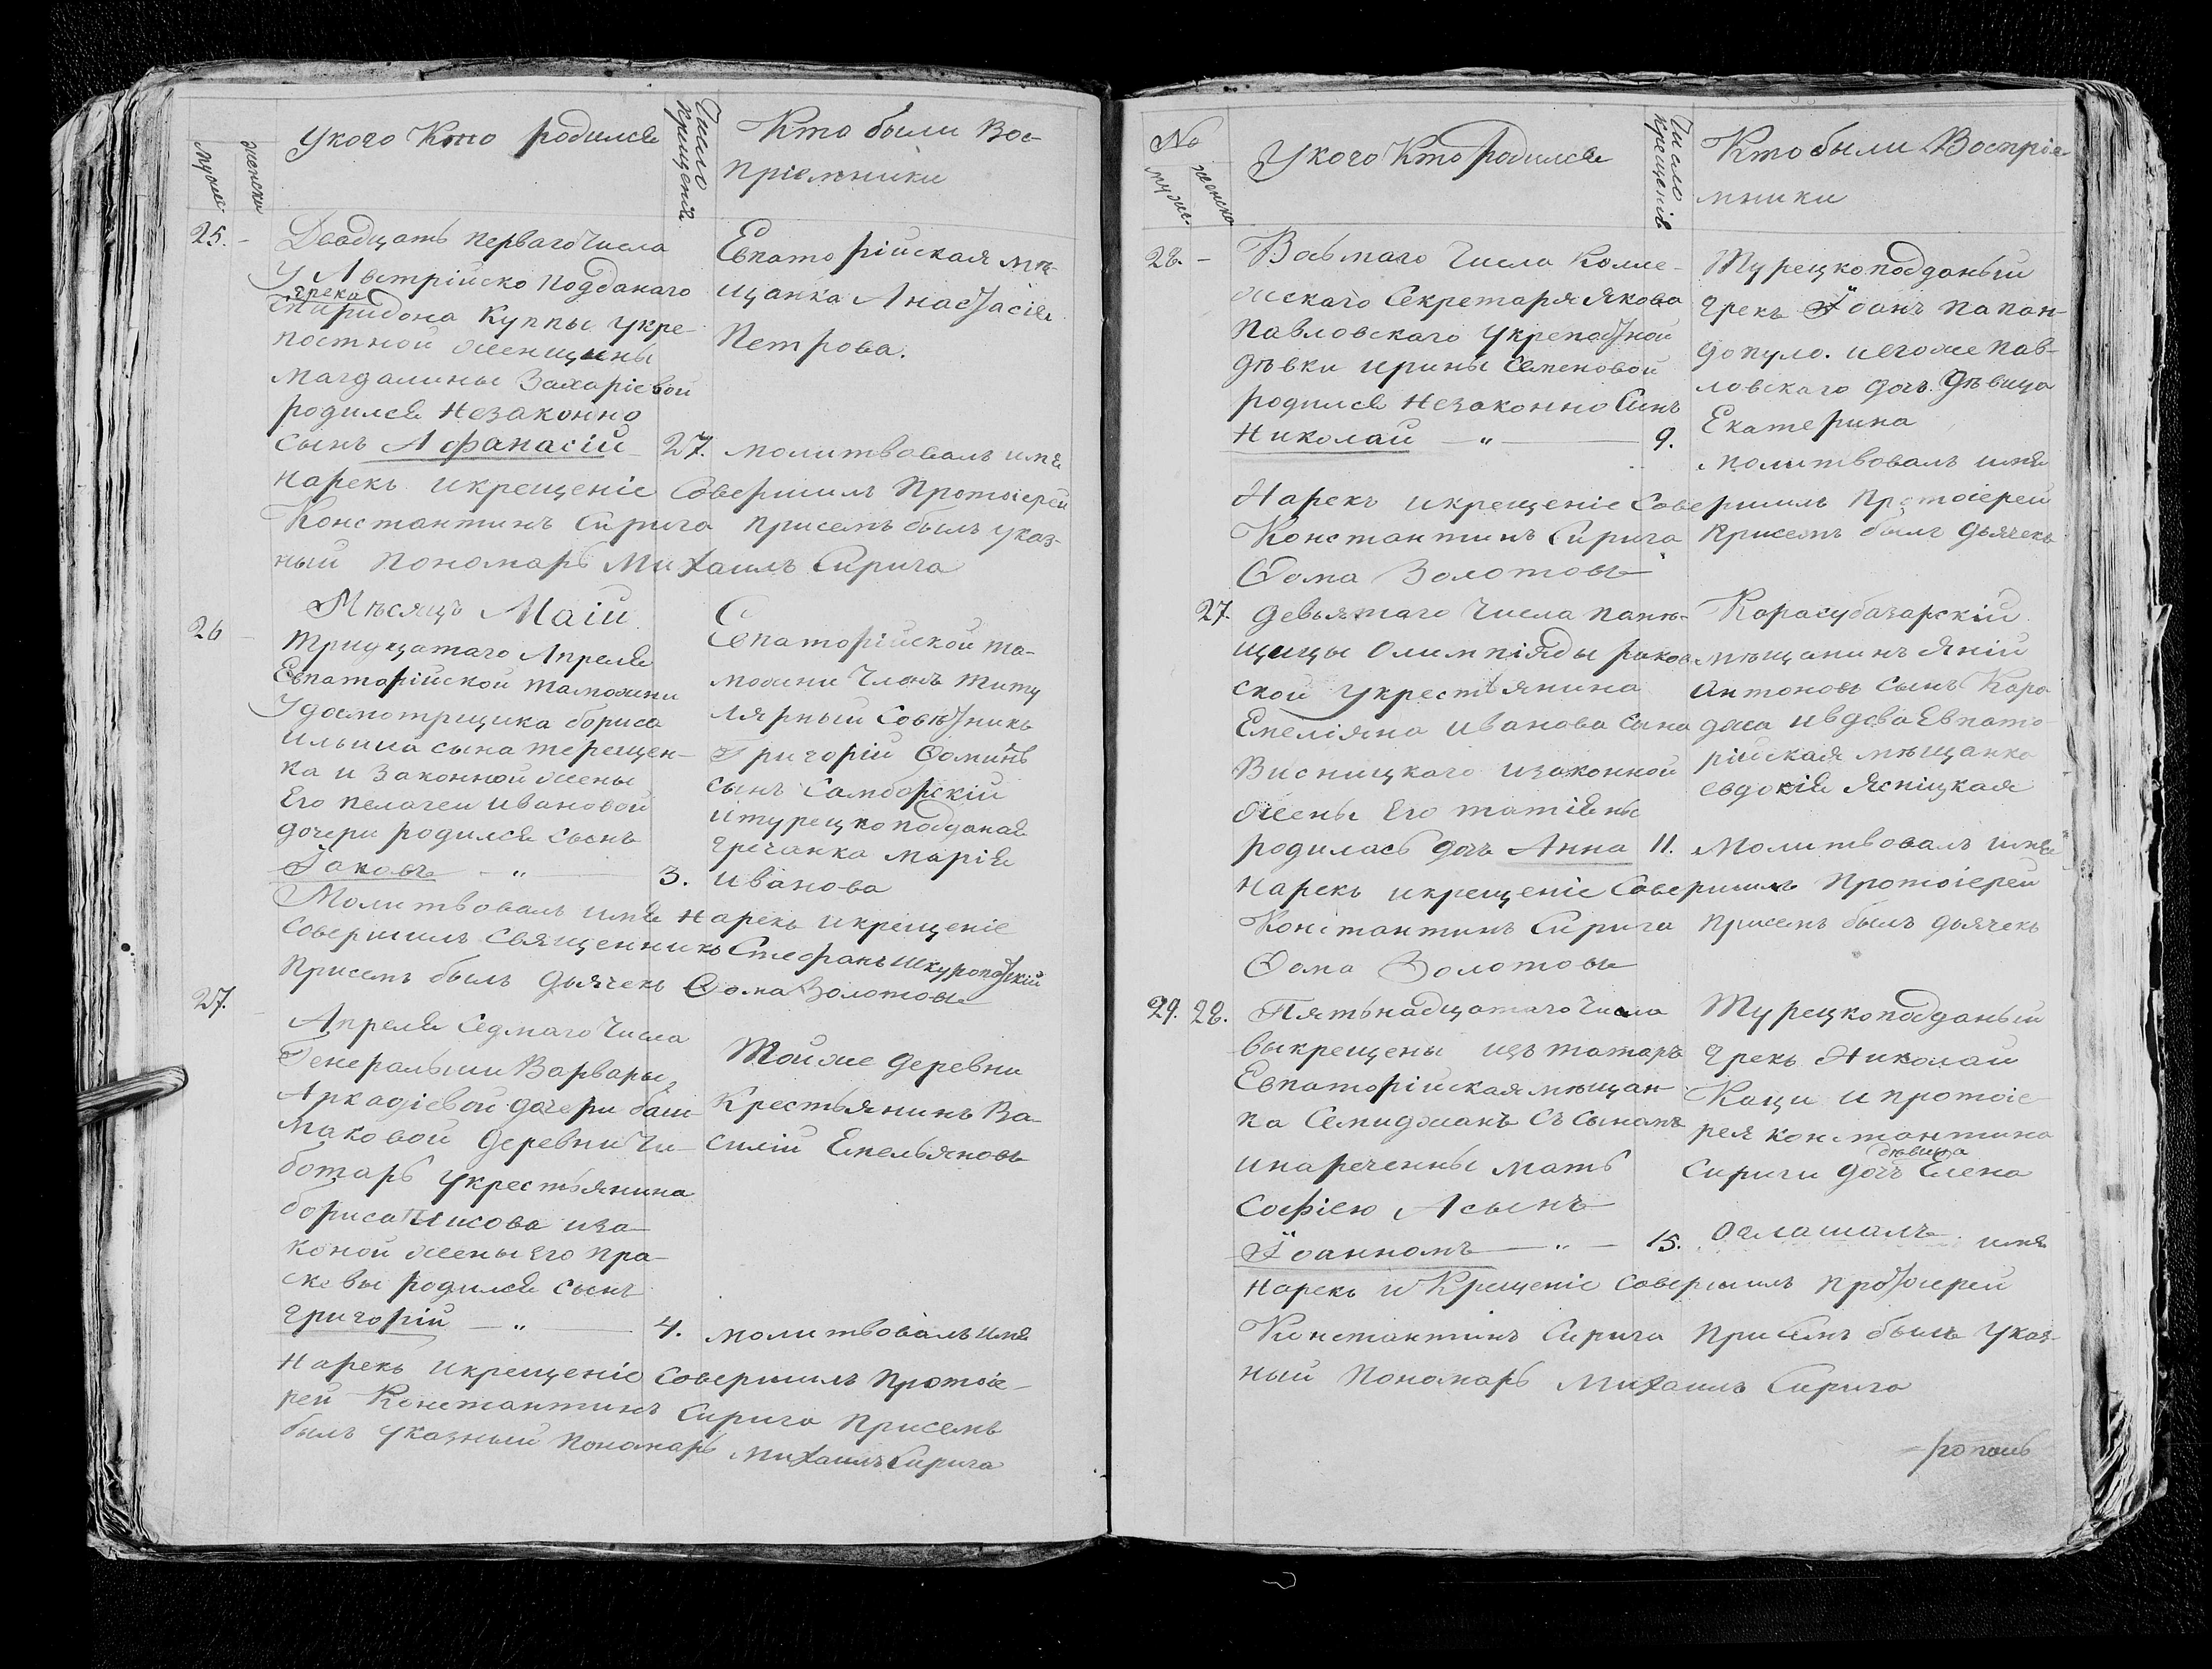 мужес.
женска
Укого Кто родился
Число крещенiя
Кто были Вос-
прiемники
25. -
Двадцать перваго Числа
У Австрiйско подданаго
грека
Спиридона Куппы укре-
постной женщины
Магдалины Захарiевой
родился Незаконно
сынъ Афанасiй
27.
Евпаторiйская мѣ-
щанка Анастасiя
Петрова.
молитвовалъ имя
нарекъ икрещенiе Совершилъ Протоiерей
Константинъ Сирига присемъ былъ указ-
ный Пономарь Михаилъ Сирига
Мѣсяцъ Маiй
26 -
тридцатаго Апреля
Евпаторiйской таможни
Удосмотрщика бориса
ильина сына терещен-
ка и Законной жены
Его пелагеи ивановой
дочери родился сынъ
Iаковъ - " - 3.
Евпаторiйской та-
можни Членъ титу
лярный Совѣтникъ
Григорiй Фоминъ
сынъ Самборскiй
итурецкоподданая
гречанка марiя
иванова
Молитвовалъ имя нарекъ икрещенiе
совершилъ священникъ Стефанъ Шкуропатскiй
Присемъ былъ дьячекъ Фома Золотовъ
27. -
Апреля Седмаго Числа
Генеральши Варвары
Аркадiевой дочери баш-
маковой деревни Чи-
ботарь укрестьянина
бориса иза-
коной жены его пра-
скевы родился сынъ
григорiй - " - 4.
Тойже деревни
Крестьянинъ Ва-
силiй Емельяновъ
молитвовалъ имя
Нарекъ икрещенiе совершилъ протоiе-
рей Константинъ Сирига Присемъ
былъ указный пономарь Михаилъ Сирига
№
мужес.
женска
Укого Кто родился
Число крещенiя
Кто были Воспрiе-
мники
28. -
Восьмаго Числа Колле-
жскаго Секретаря Якова
Павловскаго укрепостной
дѣвки ирины Семеновой
родился незаконно Синъ
Николай - " - 9.
Турецкоподданый
грекъ Iоанъ папан-
допуло. иегоже пав-
ловскаго дочъ дѣвица
Екатерина
молитвовалъ имя
Нарекъ икрещенiе Совершилъ протоiерей
Константинъ Сирига Присемъ былъ дьячекъ
Фома Золотовъ
27.
девьятаго Числа памѣ-
щицы Олимпiяды раков-
ской укрестьянина
Емелiяна иванова сына
Висницкаго изаконной
жены Его татiяны
родилась дочъ Анна 11.
Карасубазарскiй
мѣщанинъ Янiй
Антоновъ сынъ Кара
джа ивдова Евпато-
рiйская мѣщанка
евдокiя Ясніцкая
Молитвовалъ имя
нарекъ икрещенiе Совершилъ протоiерей
Константинъ Сирига присемъ былъ дьячекъ
Фома Золотовъ
29. 28.
Пятьнадцатаго Числа
выкрещены изъ татаръ
Евпаторiйская мѣщан-
ка Семиджанъ съ сыномъ
инаречены мать
Софiею Асынъ
Iоанномъ - " - 15.
Турецкоподданый
грекъ Николай
Каци и протоiе-
рея константина
дѣвица
Сириги дочъ Елена
Оглашалъ имя
нарекъ и Крещенiе совершилъ протоiерей
Константинъ Сирига присемъ былъ указ-
ный Пономарь Михаилъ Сирига